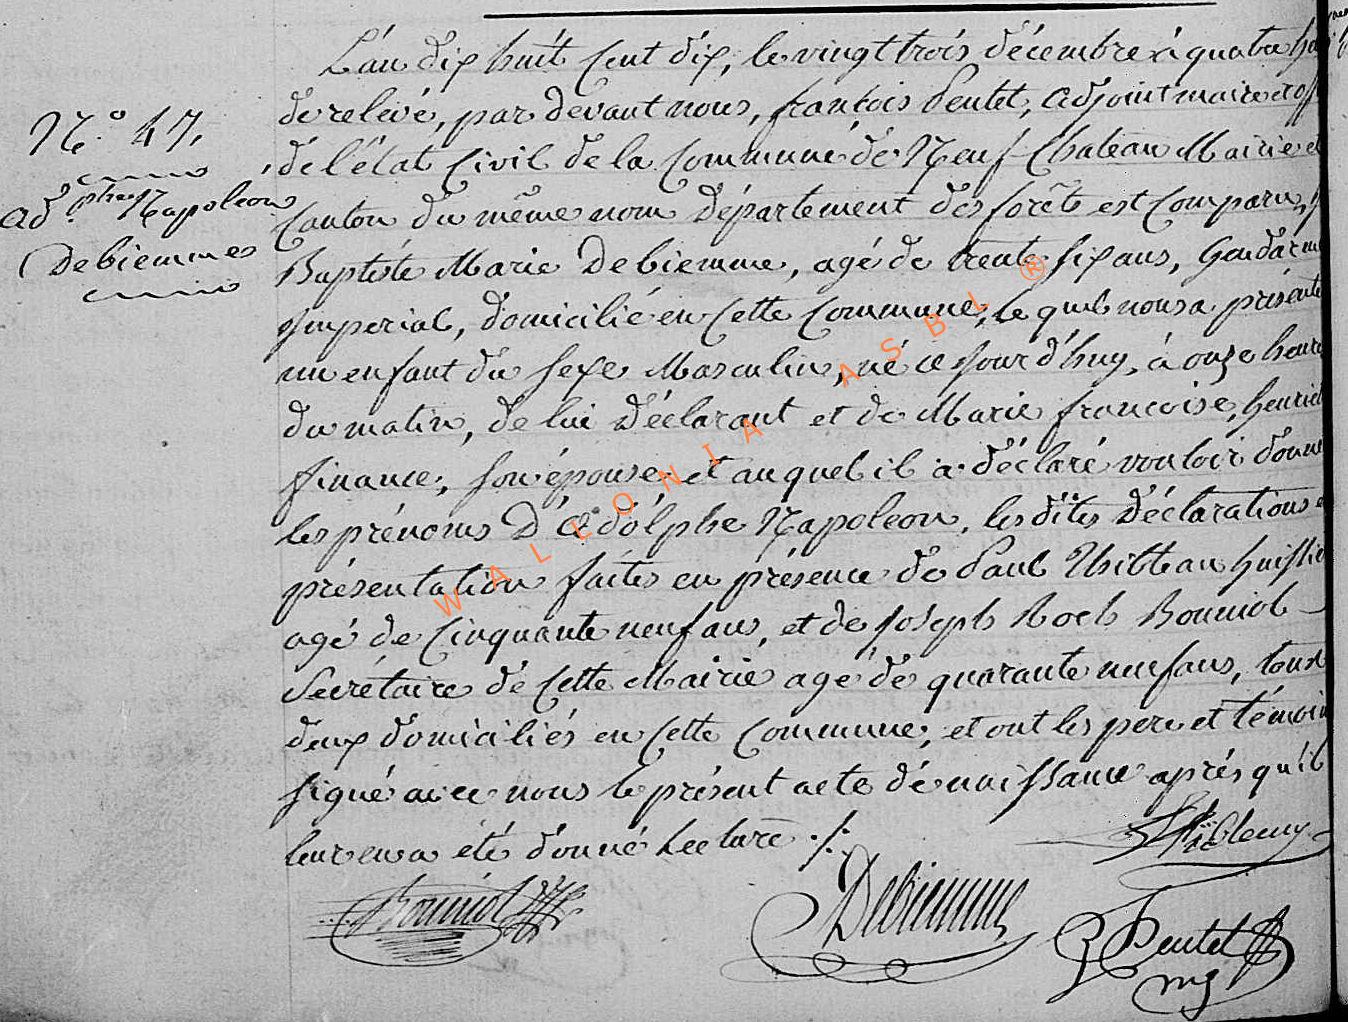 L'an dix huit Cent dix, le vingt trois décembre à quatre
de relevé, par devant nous, françois Pentet, adjoint maire et
de l'état Civil de la Commune de Neuf-Chateau Mairie et
N.º 47.
ad.phe Napoléon
Debiemme
Canton du même nom département des forêts est Comparu,
Baptiste Marie Debiemme, agé de trente six ans, Gendarme
Imperial, domicilié en Cette Commune, le quel nous a présenté
un enfant du Sexe Masculin, né ce jour d'huy, à onze heures
du matin, de lui déclarant et de Marie françoise,
finance, son épouse, et auquel il a déclaré vouloir donner
les prénoms D'adólphe Napoleon, les dites déclarations
présentation faites en présence de Paul
agé de Cinquante neuf ans, et de Joseph Roch Bonniol
Secrétaire de Cette Mairie agé de quarante neuf ans, tous
deux domiciliés en Cette Commune, et ont les pere et témoin
signé avec nous le présent acte de naissance aprés qu'il
leur en a été donné Lecture ./.
Bonniol
Debiemme
Pentet
WALLONIA ASBL ®